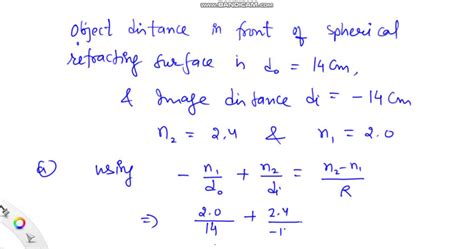 WWW.BANDICAM.COM
Object distance in front of spherical
refracting surface is d₀ = 14 cm,
& Image distance dᵢ = -14 cm
n₂ = 2.4 & n₁ = 2.0
a) using - n₁/d₀ + n₂/dᵢ = (n₂-n₁)/R
⇒ 2.0/14 + 2.4/-1